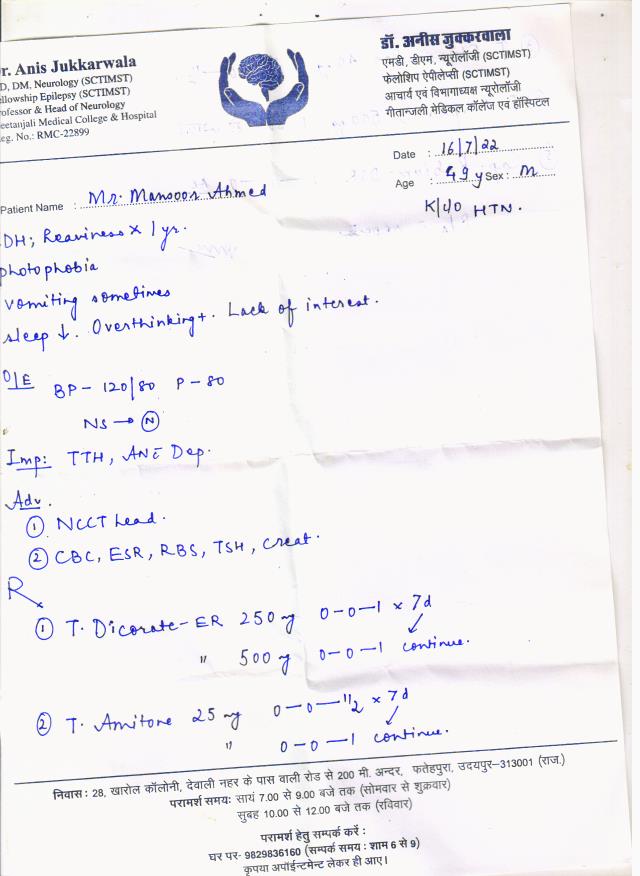 r. Anis Jukkarwala
D, DM, Neurology (SCTIMST)
ellowship Epilepsy (SCTIMST)
rofessor & Head of Neurology
eetanjali Medical College & Hospital
eg. No.: RMC-22899
डॉ. अनीस जुक्करवाला
एमडी, डीएम, न्यूरोलॉजी (SCTIMST)
फेलोशिप ऐपीलेप्सी (SCTIMST)
आचार्य एवं विभागाध्यक्ष न्यूरोलॉजी
गीतान्जली मेडिकल कॉलेज एवं हॉस्पिटल
Date : 16/7/22
Patient Name : Mr. Mansoor Ahmed
Age : 49 y Sex : M
K/C/O HTN.
DH; Heaviness x 1 yr.
photophobia
vomiting sometimes
sleep ↓. Overthinking +. Lack of interest.
O/E BP - 120/80 P - 80
NS → N
Imp: TTH, Dep.
Adv.
1 NCCT head.
2 CBC, ESR, RBS, TSH, Creat.
R
1 T. Dicorate-ER 250 mg 0-0-1 x 7d
" 500 mg 0-0-1 continue.
2 T. Amitone 25 mg 0-0-1/2 x 7d
" 0-0-1 continue.
निवास : 28, खारोल कॉलोनी, देवाली नहर के पास वाली रोड से 200 मी. अन्दर, फतेहपुरा, उदयपुर-313001 (राज.)
परामर्श समय: सायं 7.00 से 9.00 बजे तक (सोमवार से शुक्रवार)
सुबह 10.00 से 12.00 बजे तक (रविवार)
परामर्श हेतु सम्पर्क करें :
घर पर- 9829836160 (सम्पर्क समय : शाम 6 से 9)
कृपया अपॉईन्टमेन्ट लेकर ही आए।